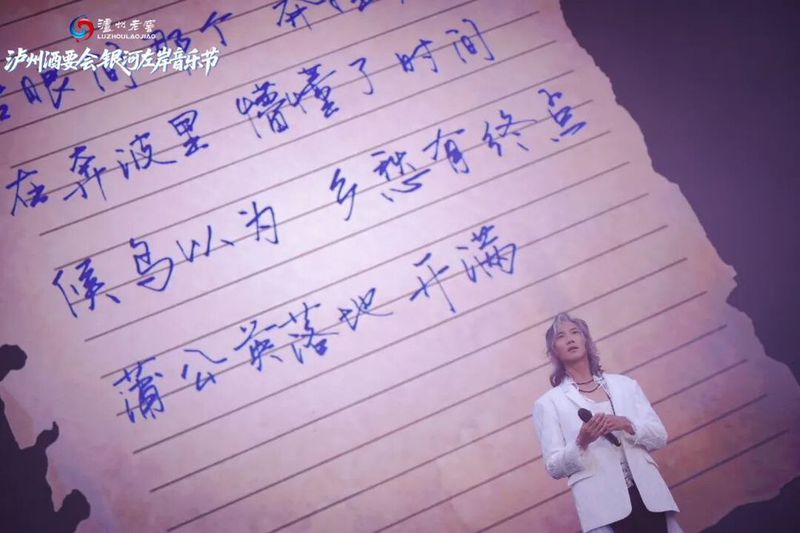 泸州老窖
LUZHOULAOJIAO
泸州酒要会 银河左岸音乐节
眼间 那个 奔
在奔波里 懵懂了时间
候鸟以为 乡愁有终点
蒲公英落地 开满